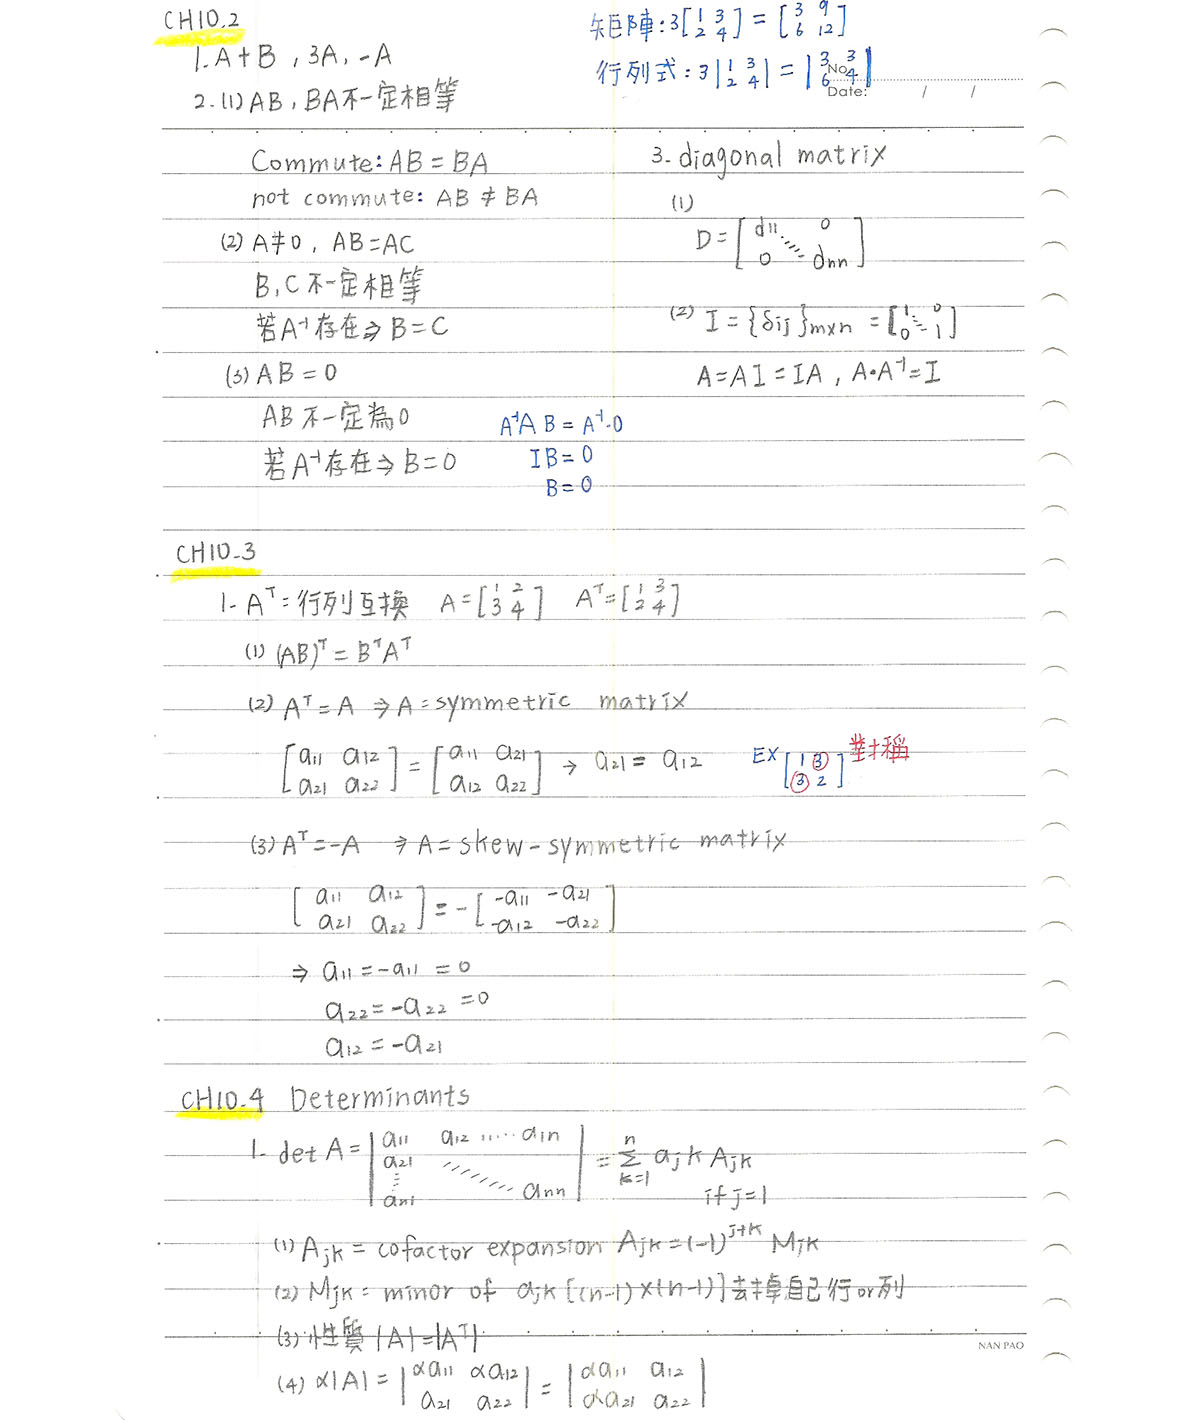 CH10.2
1. A+B , 3A , -A
矩陣: 3[1 3; 2 4] = [3 9; 6 12]
行列式: 3|1 3; 2 4| = |3 3; 6 4|
No.
Date: / /
2. (1) AB , BA 不一定相等
Commute: AB = BA
not commute: AB ≠ BA
(2) A≠0 , AB=AC
B, C 不一定相等
若A⁻¹存在⇒B=C
(3) AB = 0
AB 不一定為0
若A⁻¹存在⇒B=0
A⁻¹A B = A⁻¹·0
IB = 0
B = 0
3. diagonal matrix
(1)
D = [d11 0; 0 dnn]
(2) I = {δij}mxn = [1 0; 0 1]
A=AI=IA , A·A⁻¹=I
CH10-3
1. Aᵀ = 行列互換 A=[1 2; 3 4] Aᵀ=[1 3; 2 4]
(1) (AB)ᵀ = BᵀAᵀ
(2) Aᵀ = A ⇒ A = symmetric matrix
[a11 a12; a21 a22] = [a11 a21; a12 a22] → a21 = a12 EX [1 3; 3 2] 對稱
(3) Aᵀ = -A ⇒ A = skew-symmetric matrix
[a11 a12; a21 a22] = -[-a11 -a21; -a12 -a22]
⇒ a11 = -a11 = 0
a22 = -a22 = 0
a12 = -a21
CH10.4 Determinants
1. det A = |a11 a12 ...... a1n; a21; ⋮; an1 ann| = Σ(k=1→n) ajk Ajk
if j=1
(1) Ajk = cofactor expansion Ajk = (-1)^(j+k) Mjk
(2) Mjk = minor of ajk [(n-1)×(n-1)] 去掉自己行or列
(3) 性質 |A|=|Aᵀ|
(4) α|A| = |αa11 αa12; a21 a22| = |αa11 a12; αa21 a22|
NAN PAO